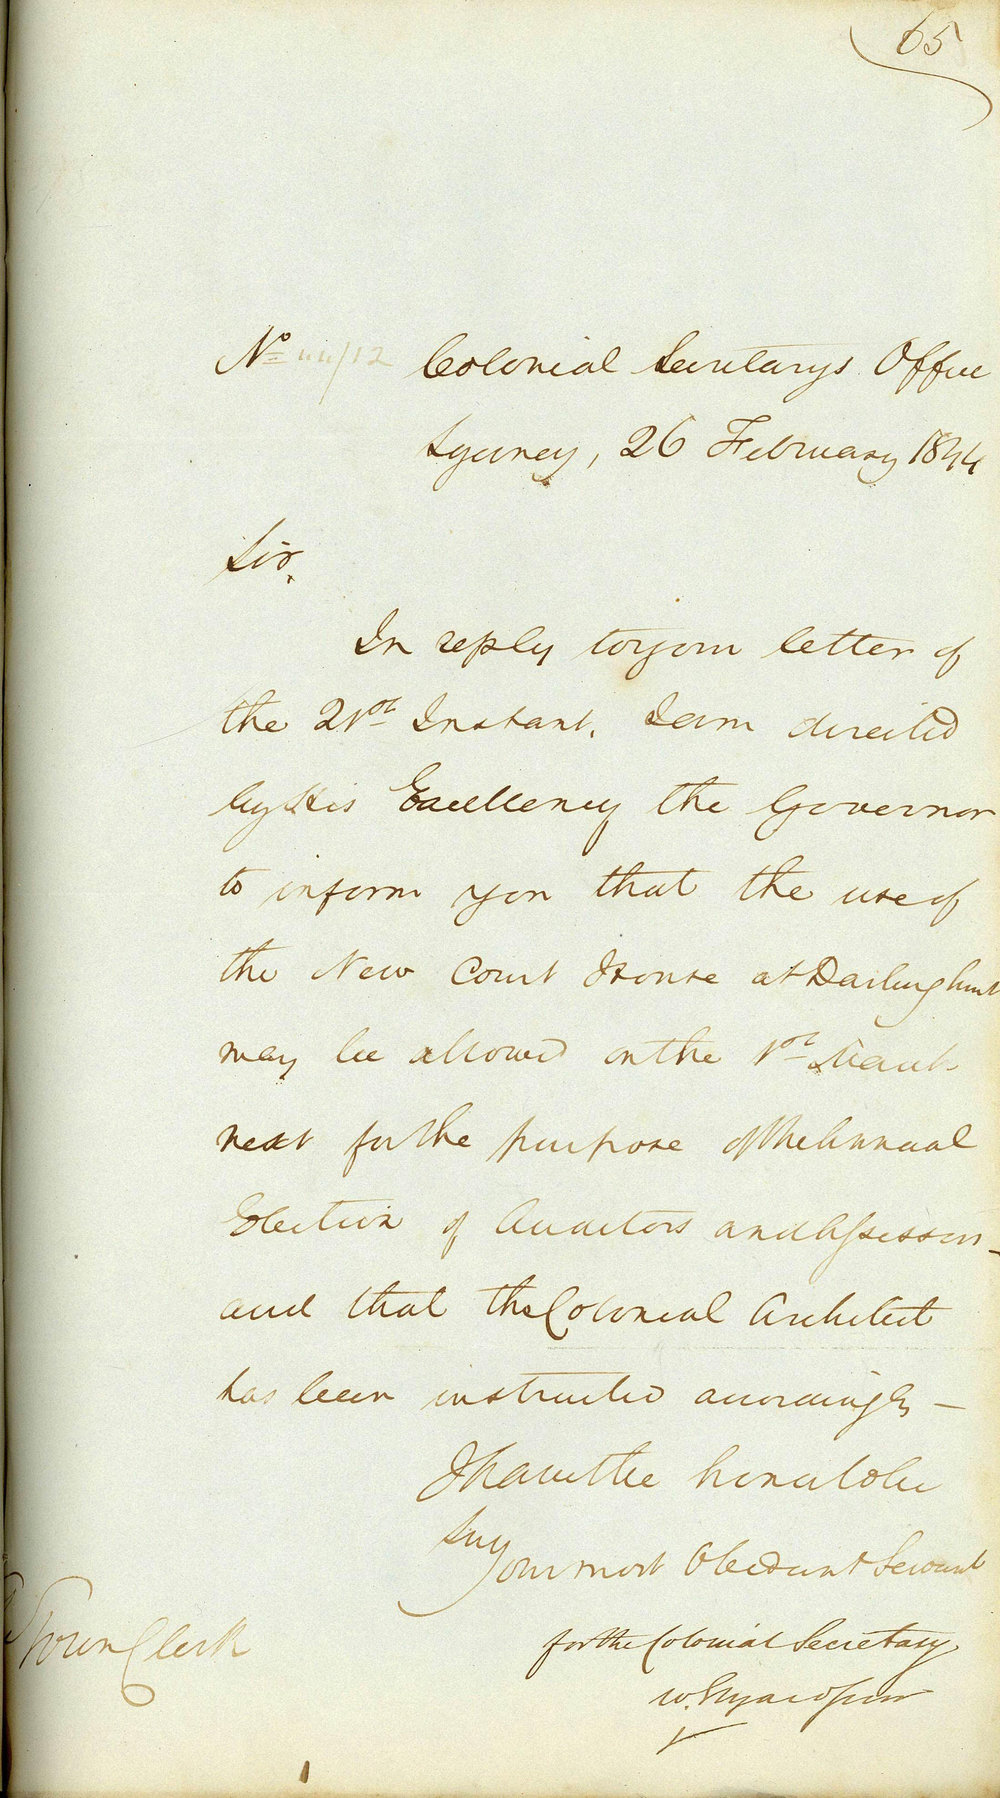 65
No 44/12 Colonial Secretarys Office
Sydney, 26 February 1844
Sir,
In reply to your letter of
the 21st Instant, I am directed
by His Excellency the Governor
to inform you that the use of
the New Court House at Darlinghurst
may be allowed on the 1st March
next for the purpose of the Annual
Election of Auditors and Assessors
and that the Colonial Architect
has been instructed accordingly –
I have the honor to be
Sir
Your most Obedient Servant
for the Colonial Secretary
W.
Town Clerk